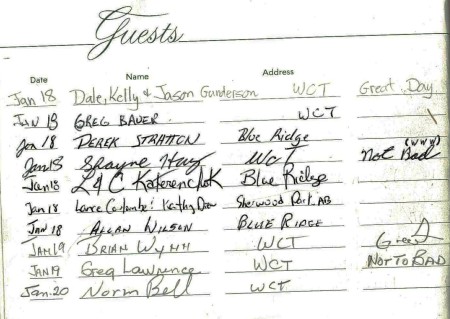 Guests
Date Name Address
Jan 18 Dale, Kelly & Jason Gunderson WCT Great Day
Jan 18 GREG BAUER WCT
Jan 18 DEREK STRATTON Blue Ridge
Jan 18 Shayne WCT Not Bad (WWW)
Jan 18 L & C Blue Ridge
Jan 18 Lance Kathy Sherwood Park, AB
Jan 18 ALLAN WILSON BLUE RIDGE
JAN 19 BRIAN WYNN WCT
JAN 19 Greg Lawrence WCT NOT TO BAD
Jan. 20 Norm Bell WCT